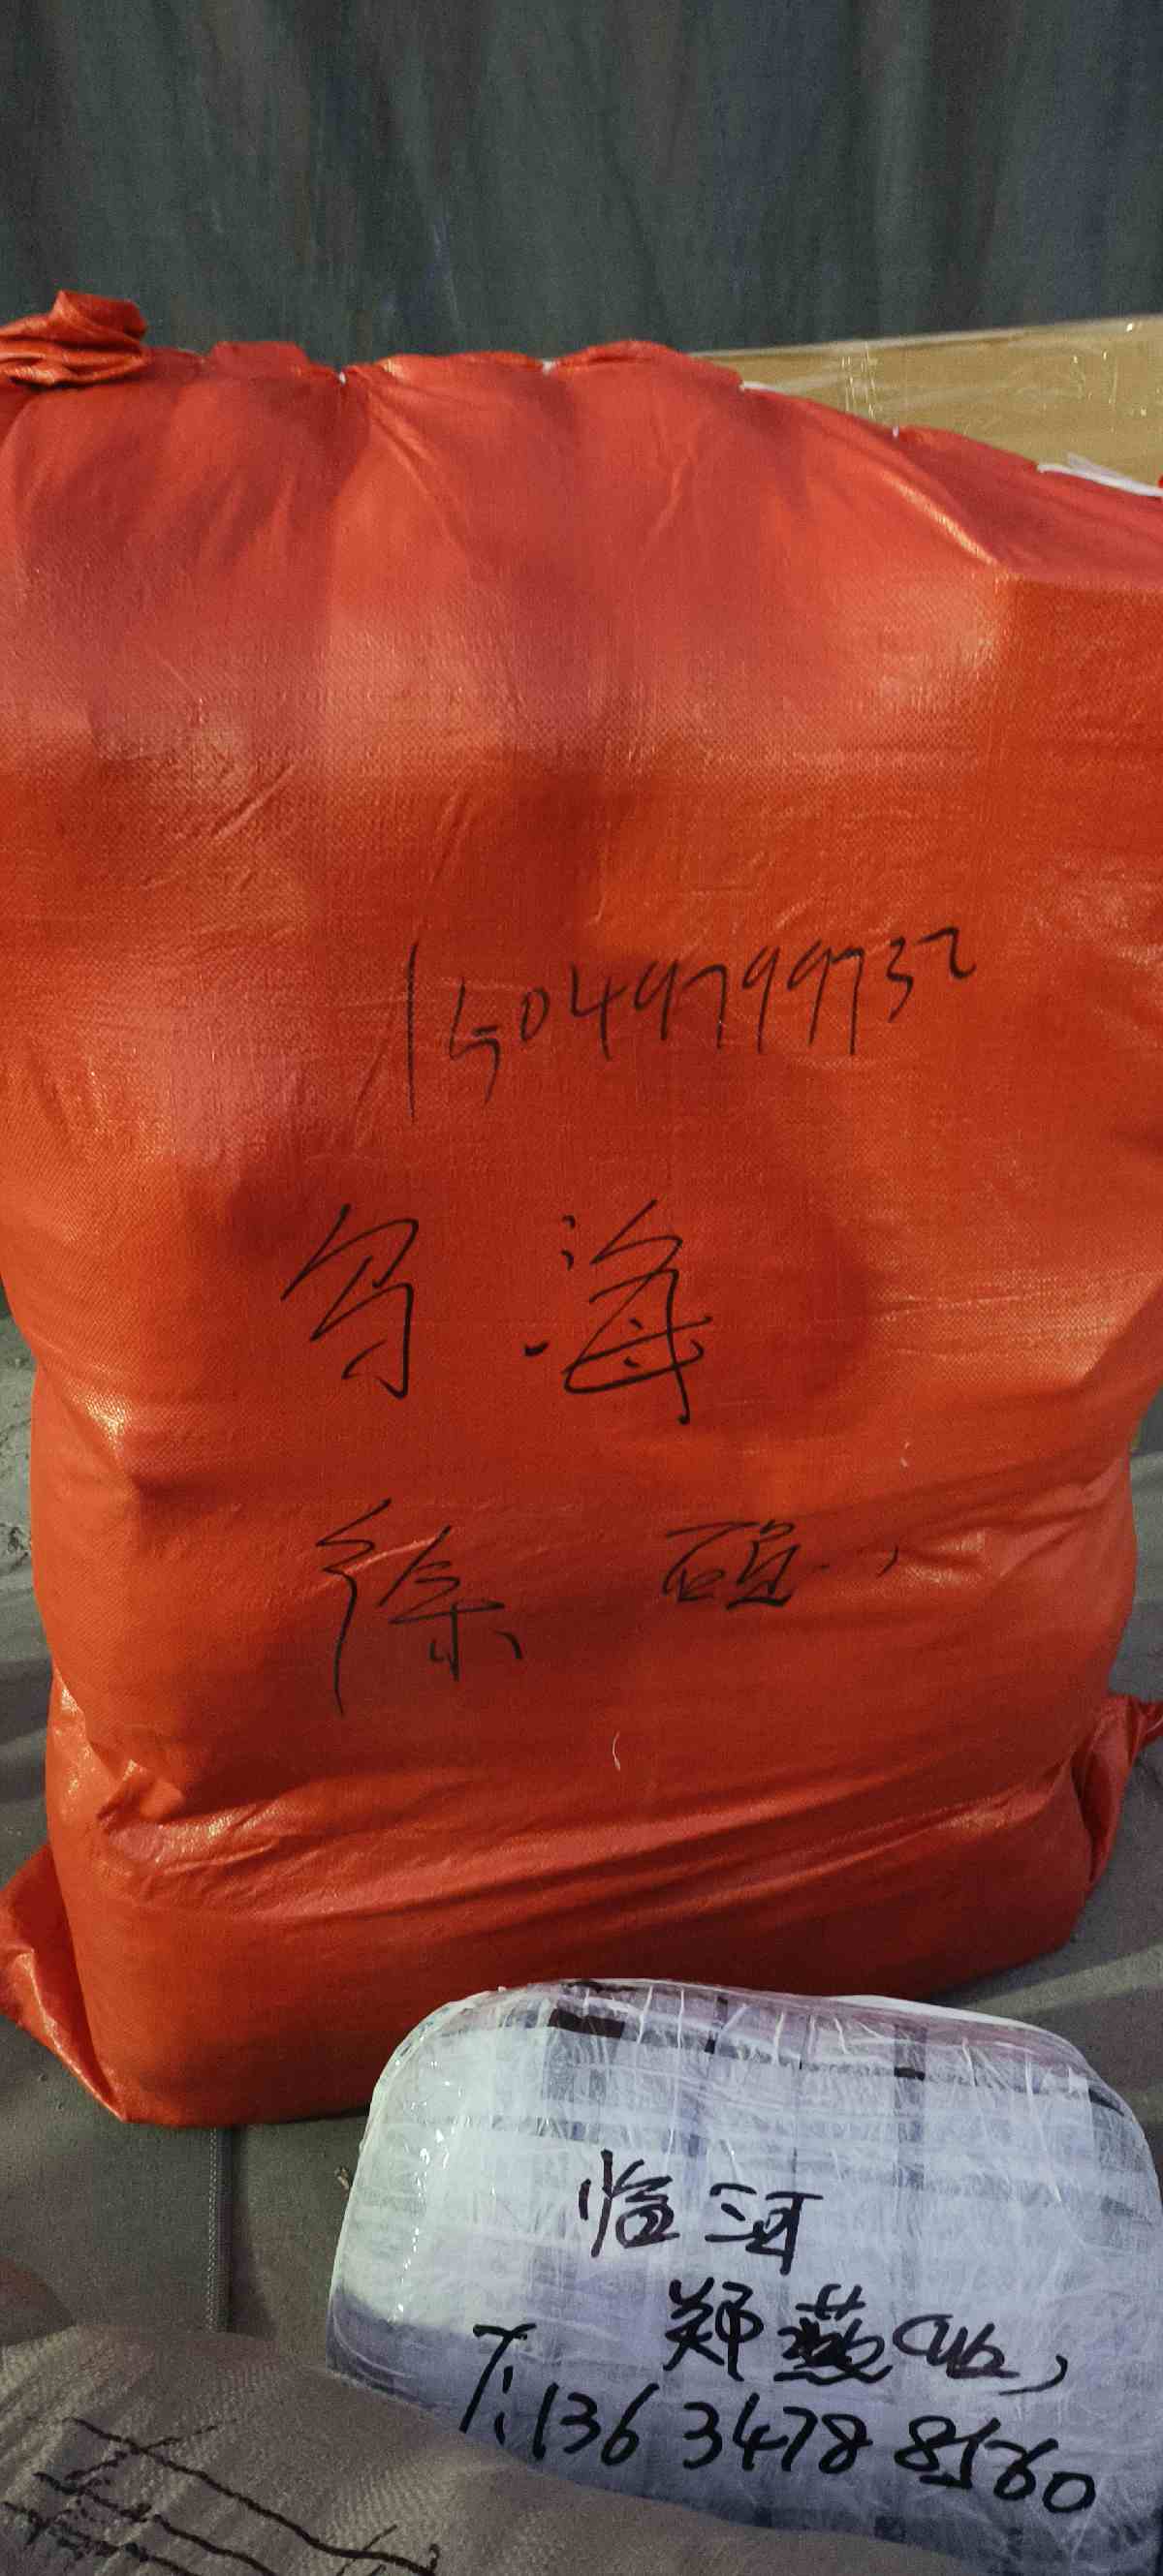 15049799732
乌海
徐硕
临河
郑燕(46)
T:13634788560